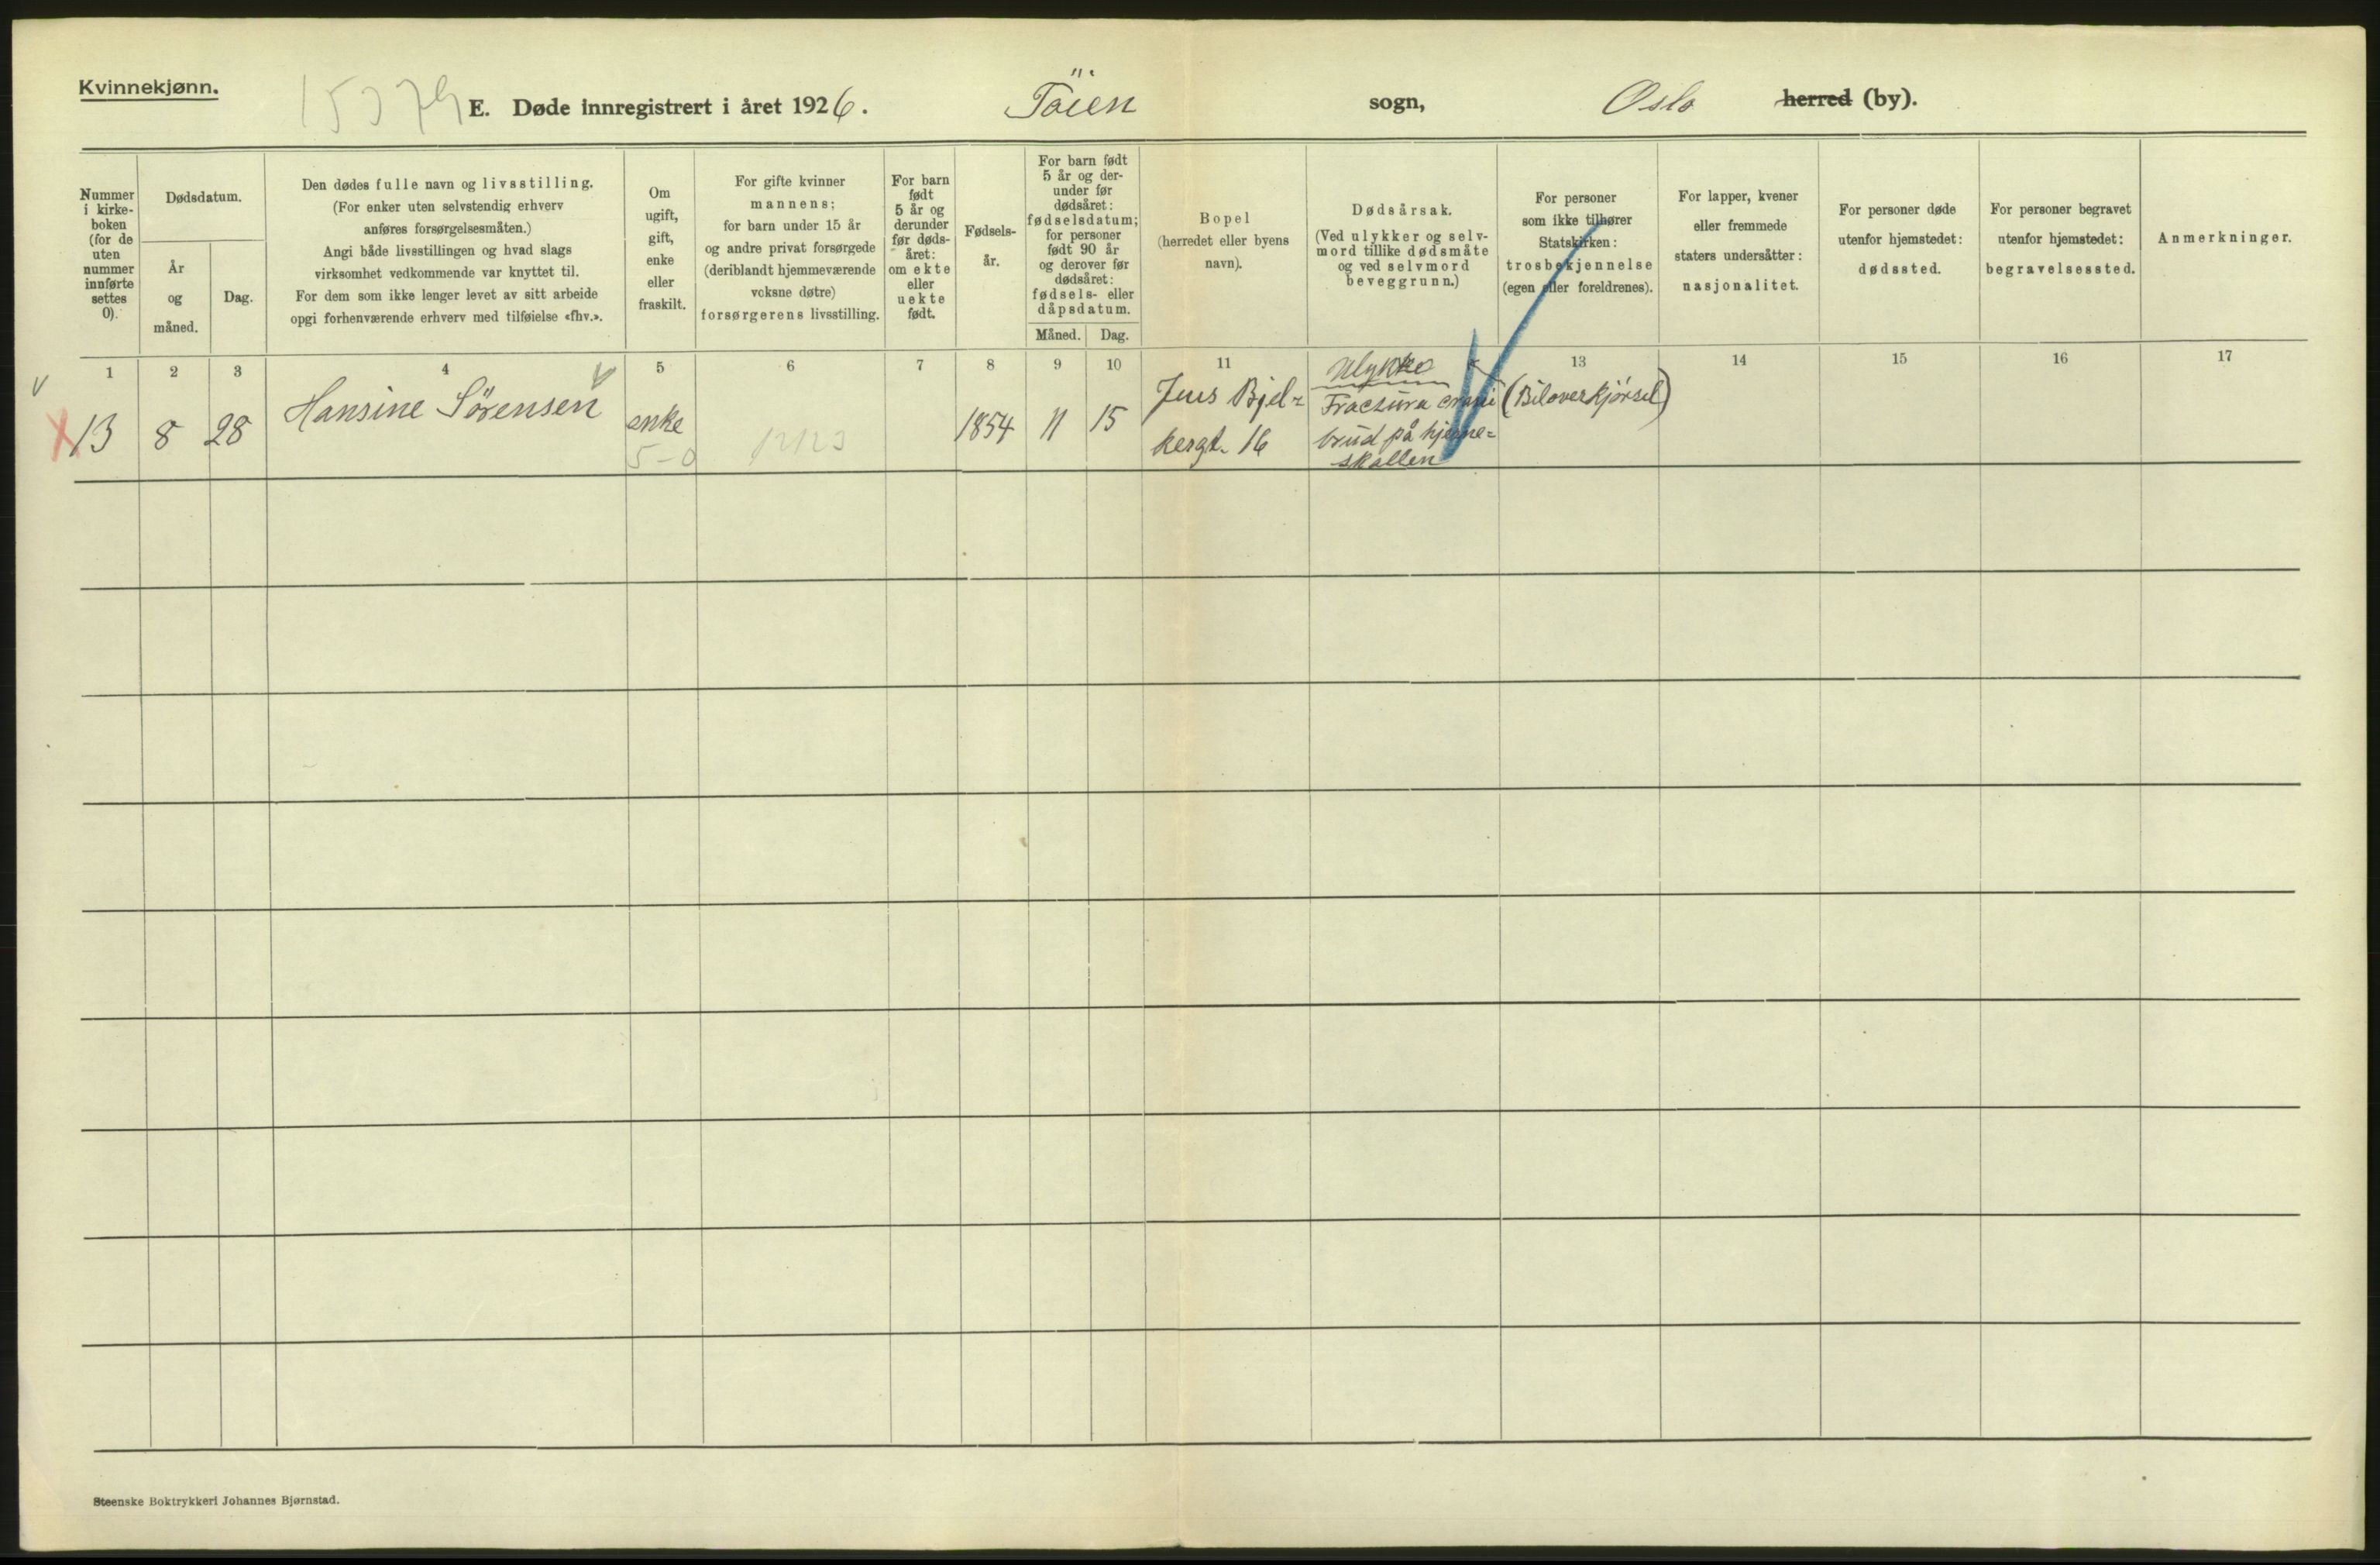 Kvinnekjønn.
E. Døde innregistrert i året 1926. Töien sogn, Oslo herred (by).
Nummer
i kirke-
boken
(for de
uten
nummer
innførte
settes
0).
Dødsdatum.
År
og
måned.
Dag.
Den dødes fulle navn og livsstilling.
(For enker uten selvstendig erhverv
anføres forsørgelsesmåten.)
Angi både livsstillingen og hvad slags
virksomhet vedkommende var knyttet til.
For dem som ikke lenger levet av sitt arbeide
opgi forhenværende erhverv med tilføielse «fhv.».
Om
ugift,
gift,
enke
eller
fraskilt.
For gifte kvinner
mannens;
for barn under 15 år
og andre privat forsørgede
(deriblandt hjemmeværende
voksne døtre)
forsørgerens livsstilling.
For barn
født
5 år og
derunder
før døds-
året:
om ekte
eller
uekte
født.
Fødsels-
år.
For barn født
5 år og der-
under før
dødsåret:
fødselsdatum;
for personer
født 90 år
og derover før
dødsåret:
fødsels- eller
dåpsdatum.
Måned. Dag.
Bopel
(herredet eller byens
navn).
Dødsårsak.
(Ved ulykker og selv-
mord tillike dødsmåte
og ved selvmord
beveggrunn.)
For personer
som ikke tilhører
Statskirken:
trosbekjennelse
(egen eller foreldrenes).
For lapper, kvener
eller fremmede
staters undersåtter:
nasjonalitet.
For personer døde
utenfor hjemstedet:
dødssted.
For personer begravet
utenfor hjemstedet:
begravelsessted.
Anmerkninger.
1 2 3 4 5 6 7 8 9 10 11 12 13 14 15 16 17
13 8 28 Hansine Sörensen enke 1854 11 15
5-0
Jens Bjel=
kesgt. 16
Ulykke
Fractura cranii (Biloverkjörsel)
brud på hjerne=
skallen
Steenske Boktrykkeri Johannes Bjørnstad.